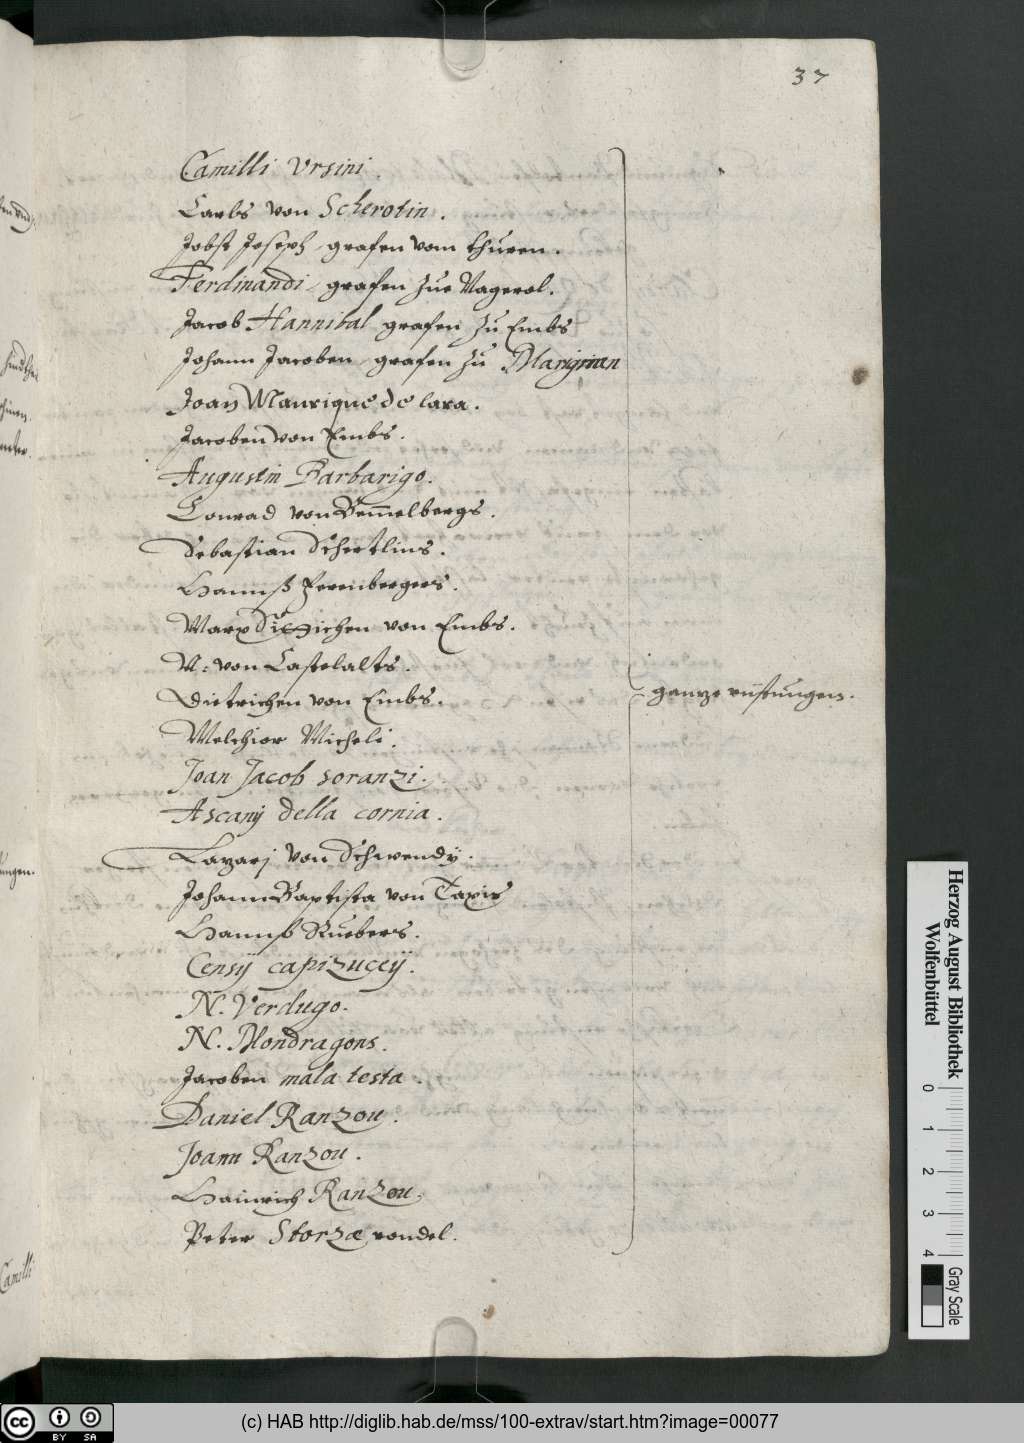 37
Camilli Vrsini.
Carls von Scherotin.
Jobst Joseph, grafen vom thuren.
Ferdinandi, grafen zue Nagerol.
Jacob Hannibal grafen zu Embs
Johann Jacoben, grafen zu Marignan
Joan Manrique de lara.
Jacoben von Embs.
Augustin Barbarigo.
Conrad von Bem̄elbergs.
Sebastian Schertlins.
Hannß Ferenbergers.
Marx Sittichen von Embs.
N: von Castelalts.
Dietrichen von Embs.
Melchior Micheli.
Joan Jacob soranzi.
Ascanij della cornia.
Lazarj von Schwendÿ.
Johann Baptista von Taxis
Hannß Ruebers.
Censÿ capizucÿ.
N. Verdugo.
N. Mondragons.
Jacoben mala testa.
Daniel Ranzou.
Joann Ranzou.
Hainrich Ranzou.
Peter Storzæ rondel.
ganze rüstungen.
Camilli
Herzog August Bibliothek
Wolfenbüttel
0 1 2 3 4
Gray Scale
cc BY SA
(c) HAB http://diglib.hab.de/mss/100-extrav/start.htm?image=00077